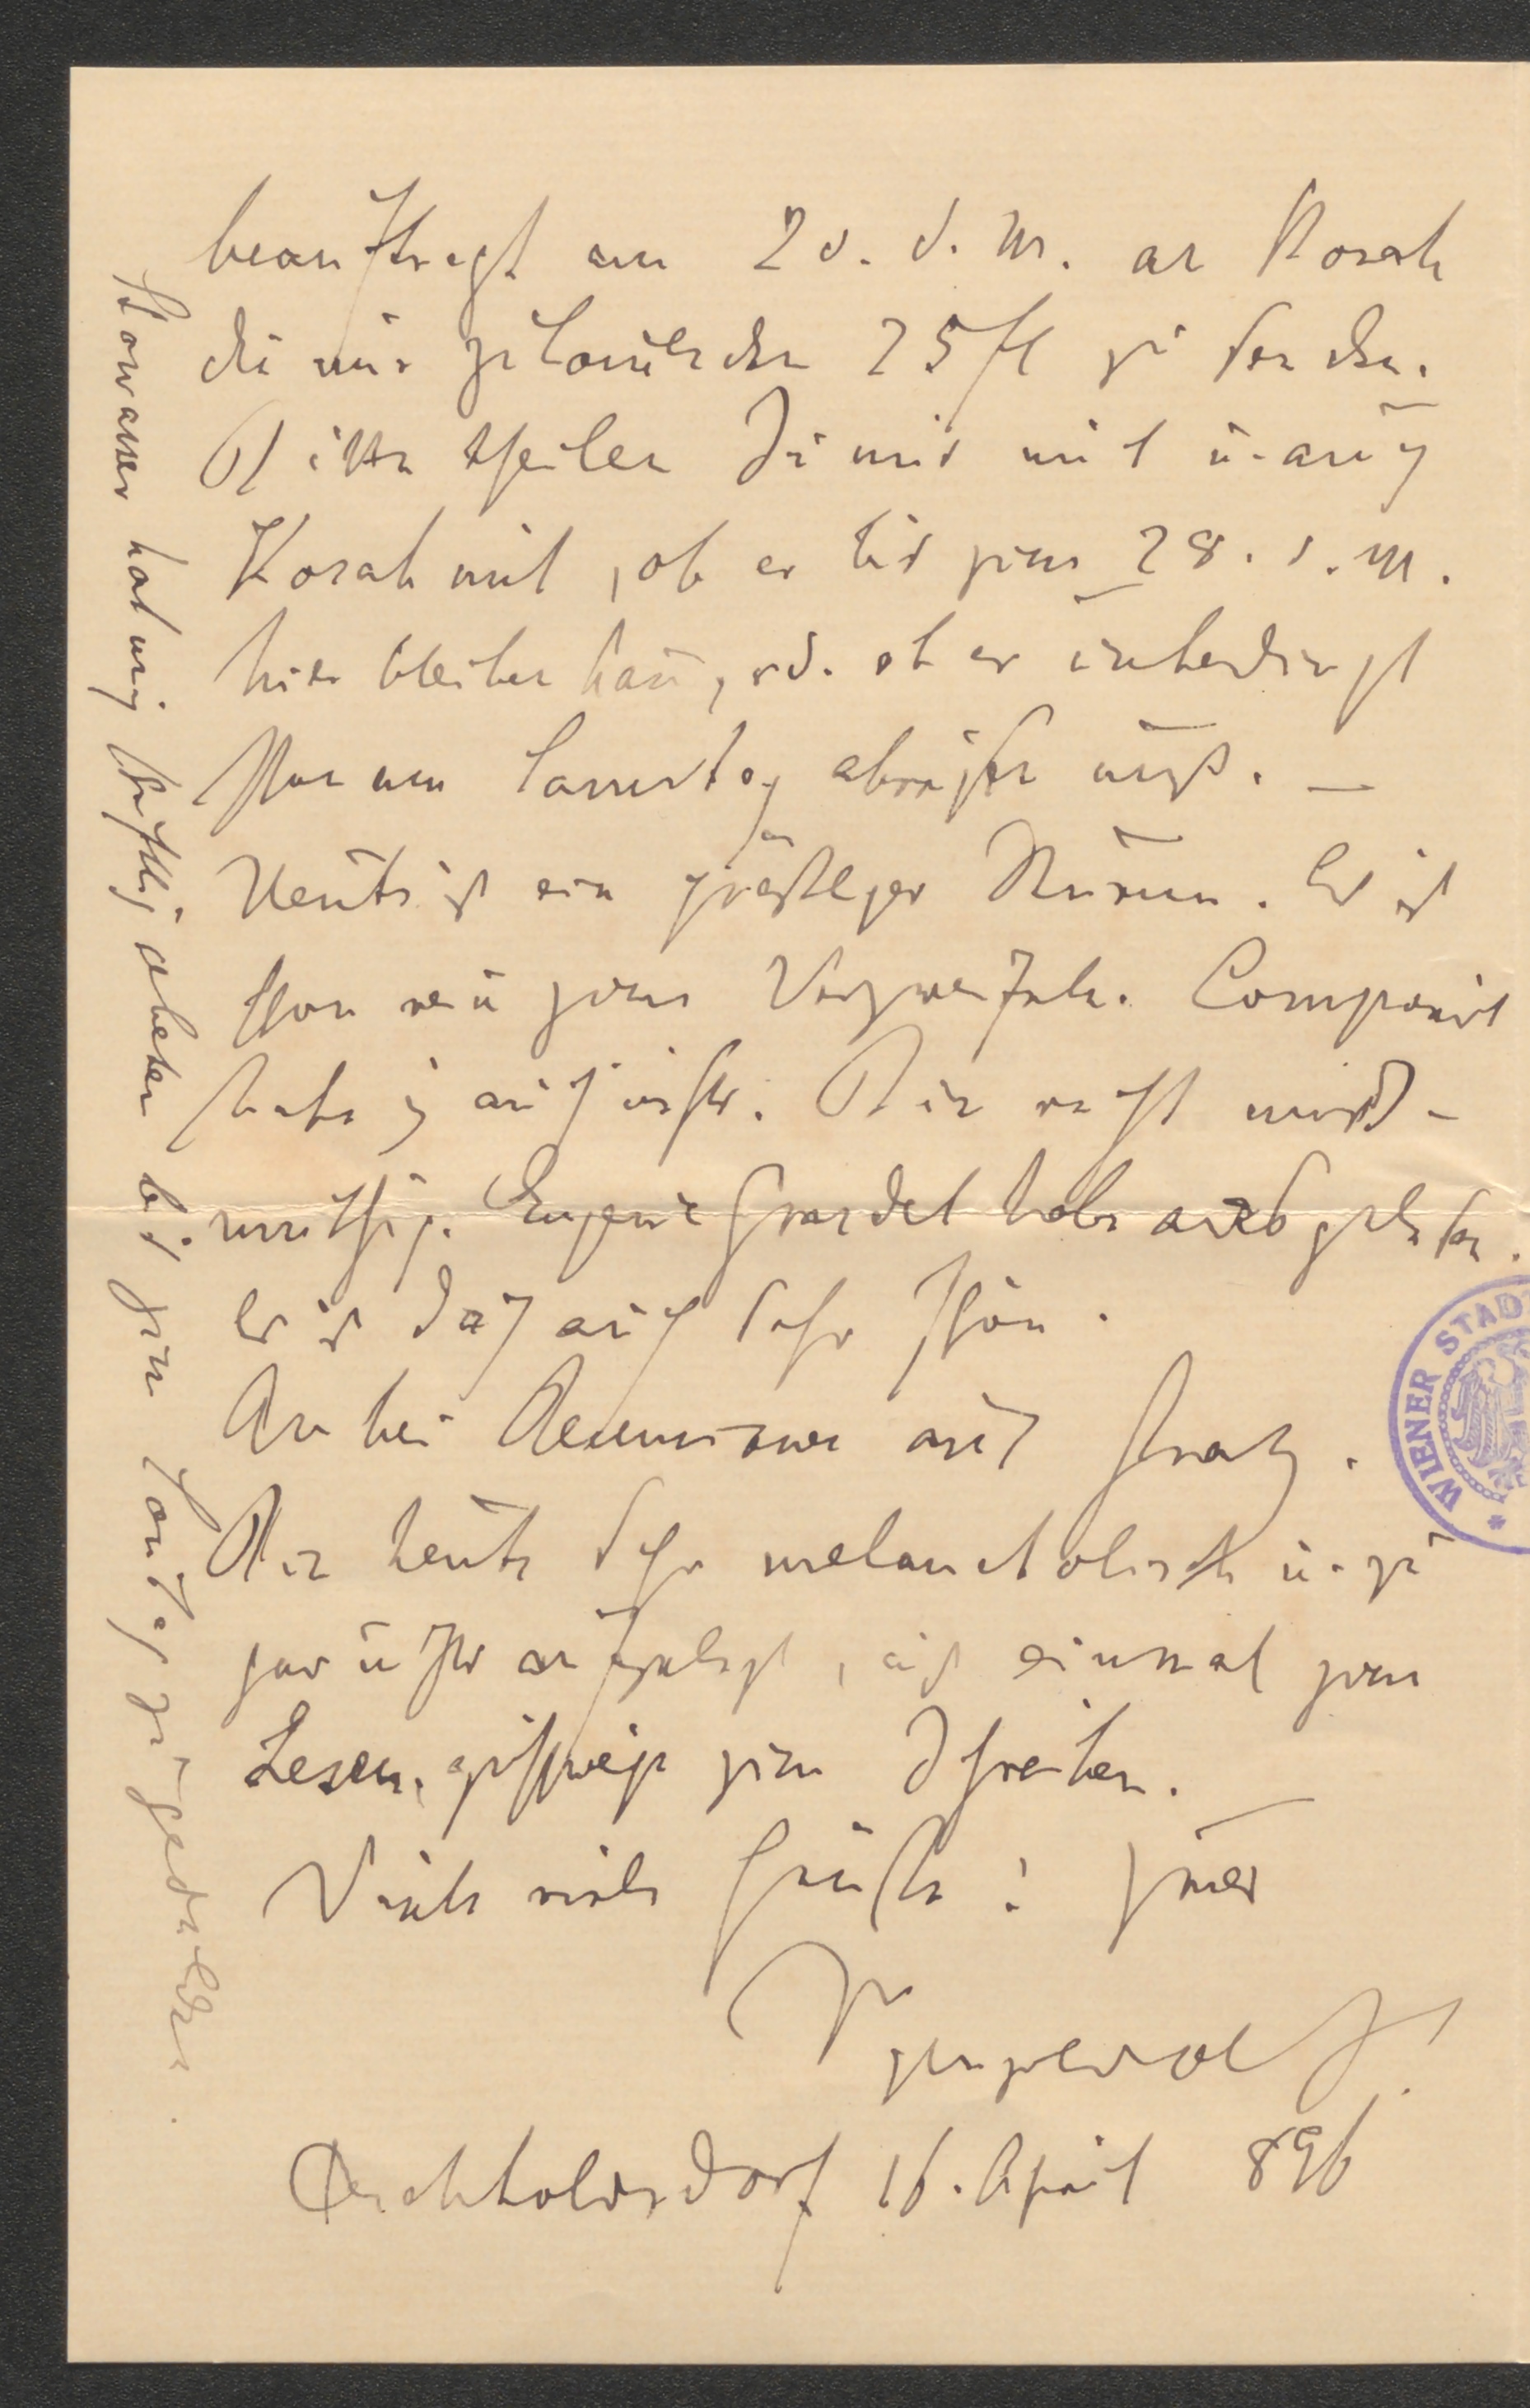 beauftragt am 20. d. M. an Horak
die mir gebührenden 25 fl zu senden.
Bitte theilen Sie mir mit u. auch
Horak mit, ob er bis zum 28. d. M.
hier bleiben kann, od. ob er unbedingt
schon am Samstag abreisen muß. —
Heute ist ein gräßlicher Sturm. Es ist
schon rein zum Verzweifeln. Componirt
habe ich auch nichts. Bin recht miß-
muthig. Eugenie Grandet habe ausgelesen.
Es ist doch auch sehr schön.
Anbei Recension aus Graz.
Bin heute sehr melancholisch u. zu
gar nichts aufgelegt, nicht einmal zum
Lesen, geschweige zum Schreiben.
Viele viele Grüße! Ihr
Perchtoldsdorf 16. April 896
hat mich schriftlich gebeten bis zum Sonntag zu gedulden.
WIENER STAD